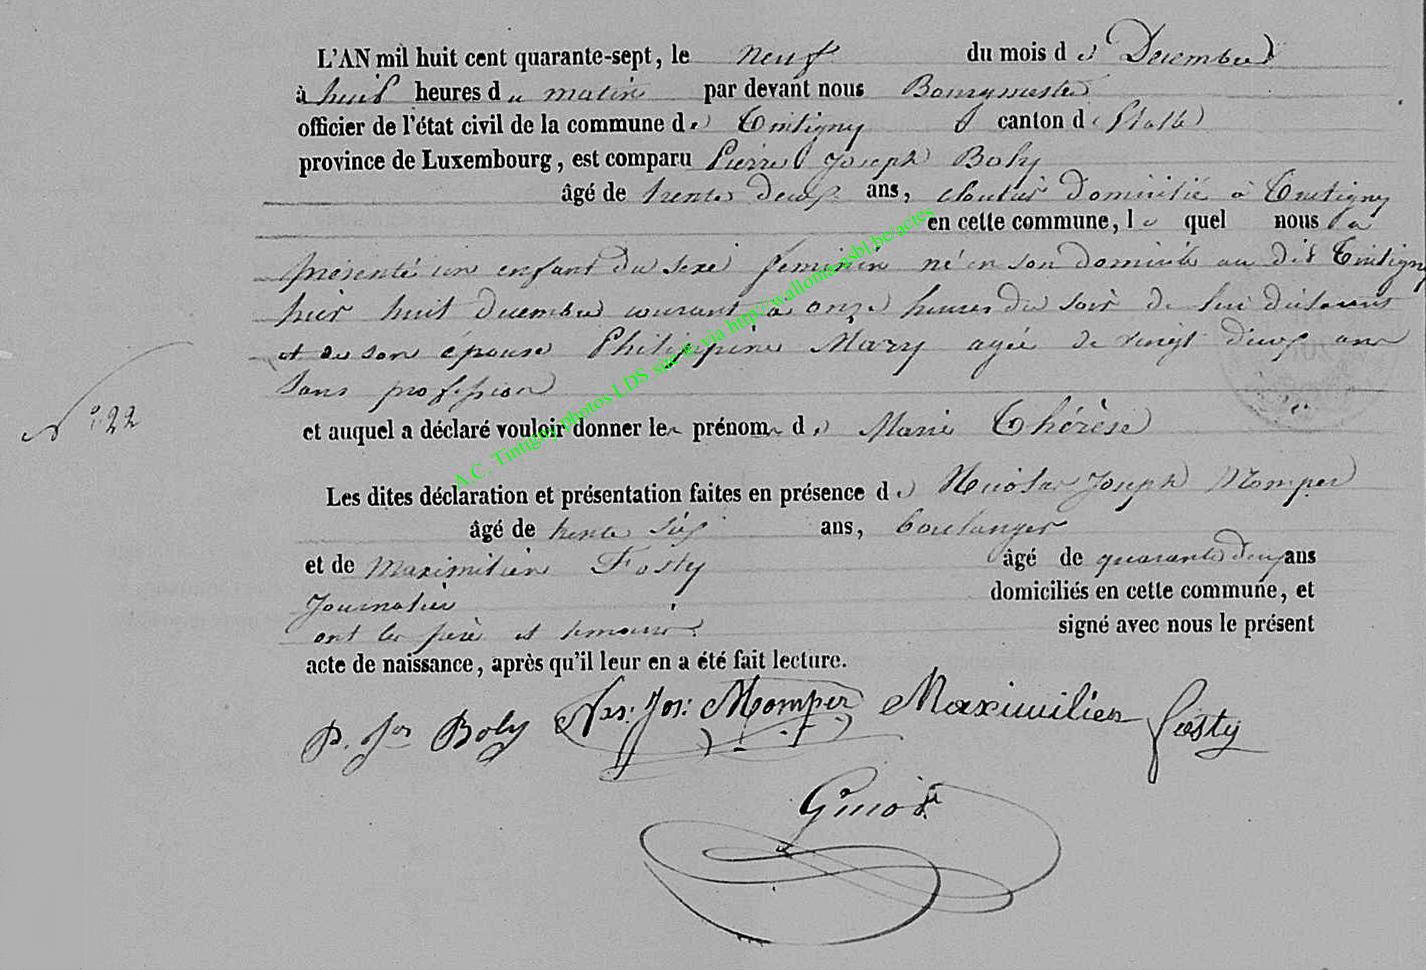 L'AN mil huit cent quarante-sept, le neuf du mois de Decembre
à huit heures du matin par devant nous Bourgmestre
officier de l'état civil de la commune de Tintigny canton d'Etalle
province de Luxembourg, est comparu Pierre Joseph Boly
âgé de trente deux ans, cloutier domicilié à Tintigny
en cette commune, lequel nous a
présenté un enfant du sexe feminin né en son domicile au dit Tintigny
hier huit decembre courant à onze heures du soir de lui déclarant
et de son epouse Philippine Mary agée de vingt deux ans
sans profession
N° 22
et auquel a déclaré vouloir donner les prénoms de Marie Thérèse
Les dites déclaration et présentation faites en présence de Nicolas Joseph Momper
âgé de trente six ans, boulanger
et de Maximilien Fosty âgé de quarante deux ans
Journalier domiciliés en cette commune, et
ont les père et temoins signé avec nous le présent
acte de naissance, après qu'il leur en a été fait lecture.
P. Jos Boly Nas: Jos: Momper Maximilien Fosty
A.C. Tintigny photos LDS via http://walloma.asbl.be/actes